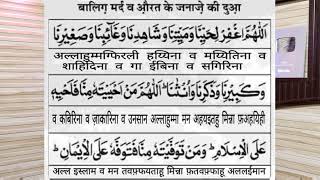 बालिग़ मर्द व औ़रत के जनाज़े की दुआ़
اَللّٰهُمَّ اغْفِرْ لِحَيِّنَا وَمَيِّتِنَا وَشَاهِدِنَا وَغَآئِبِنَا وَصَغِيْرِنَا
अल्लाहुम्मग़्फिरली हय्यिना व मय्यितिना व
शाहिदिना व गा ईबिना व सगिरिना
وَكَبِيْرِنَا وَذَكَرِنَا وَاُنْثَانَا ؕ اَللّٰهُمَّ مَنْ اَحْيَيْتَهٗ مِنَّا فَاَحْيِهٖ
व कबिरिना व ज़ाकारिना व उनसान अल्लाहुम्मा मन अहयइतहु मिन्ना फ़अहयिही
عَلَى الْاِسْلَامِ ؕ وَمَنْ تَوَفَّيْتَهٗ مِنَّا فَتَوَفَّهٗ عَلَى الْاِيْمَانِ ؕ
अलल इस्लाम व मन तवफ़्फयताहु मिन्ना फ़तवफ़्फाहु अललईमान